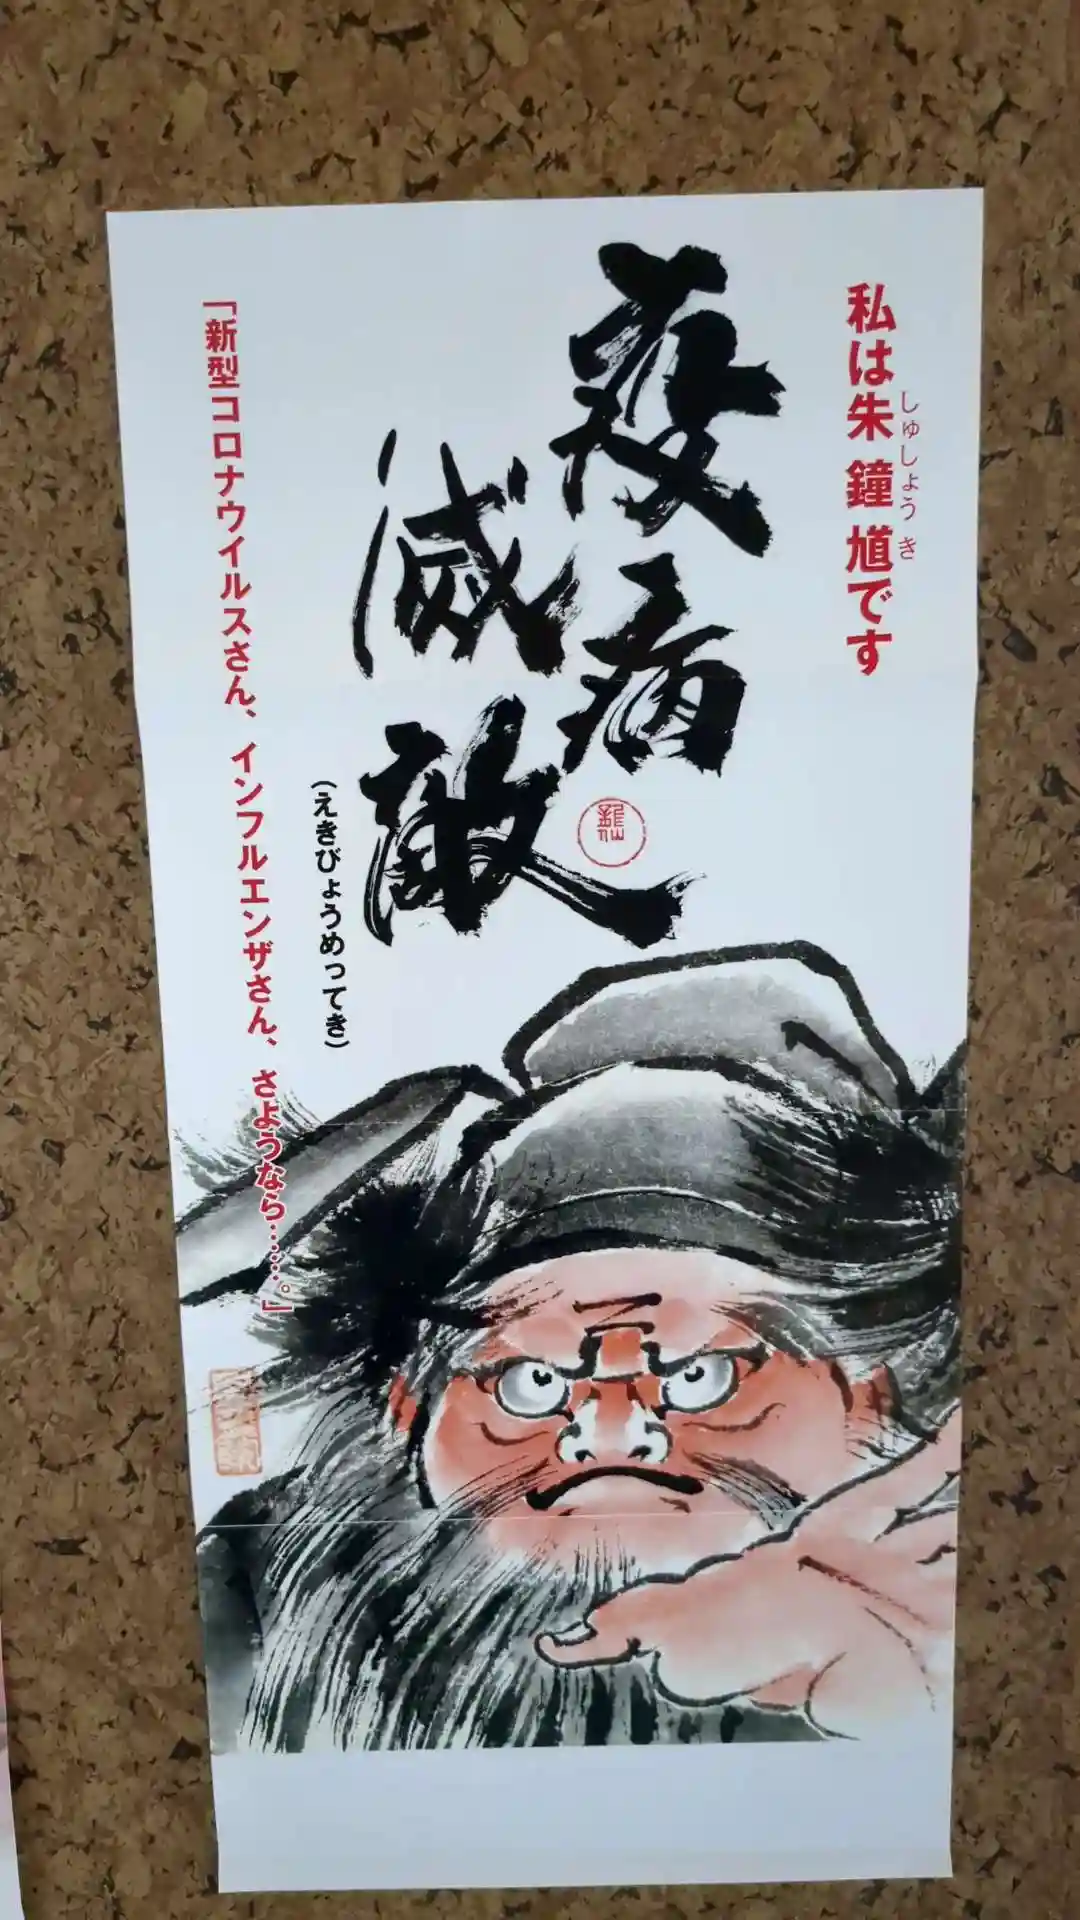 私は朱鐘馗です
しゅしょうき
疫病
滅敵
（えきびょうめってき）
「新型コロナウイルスさん、インフルエンザさん、さようなら……。」